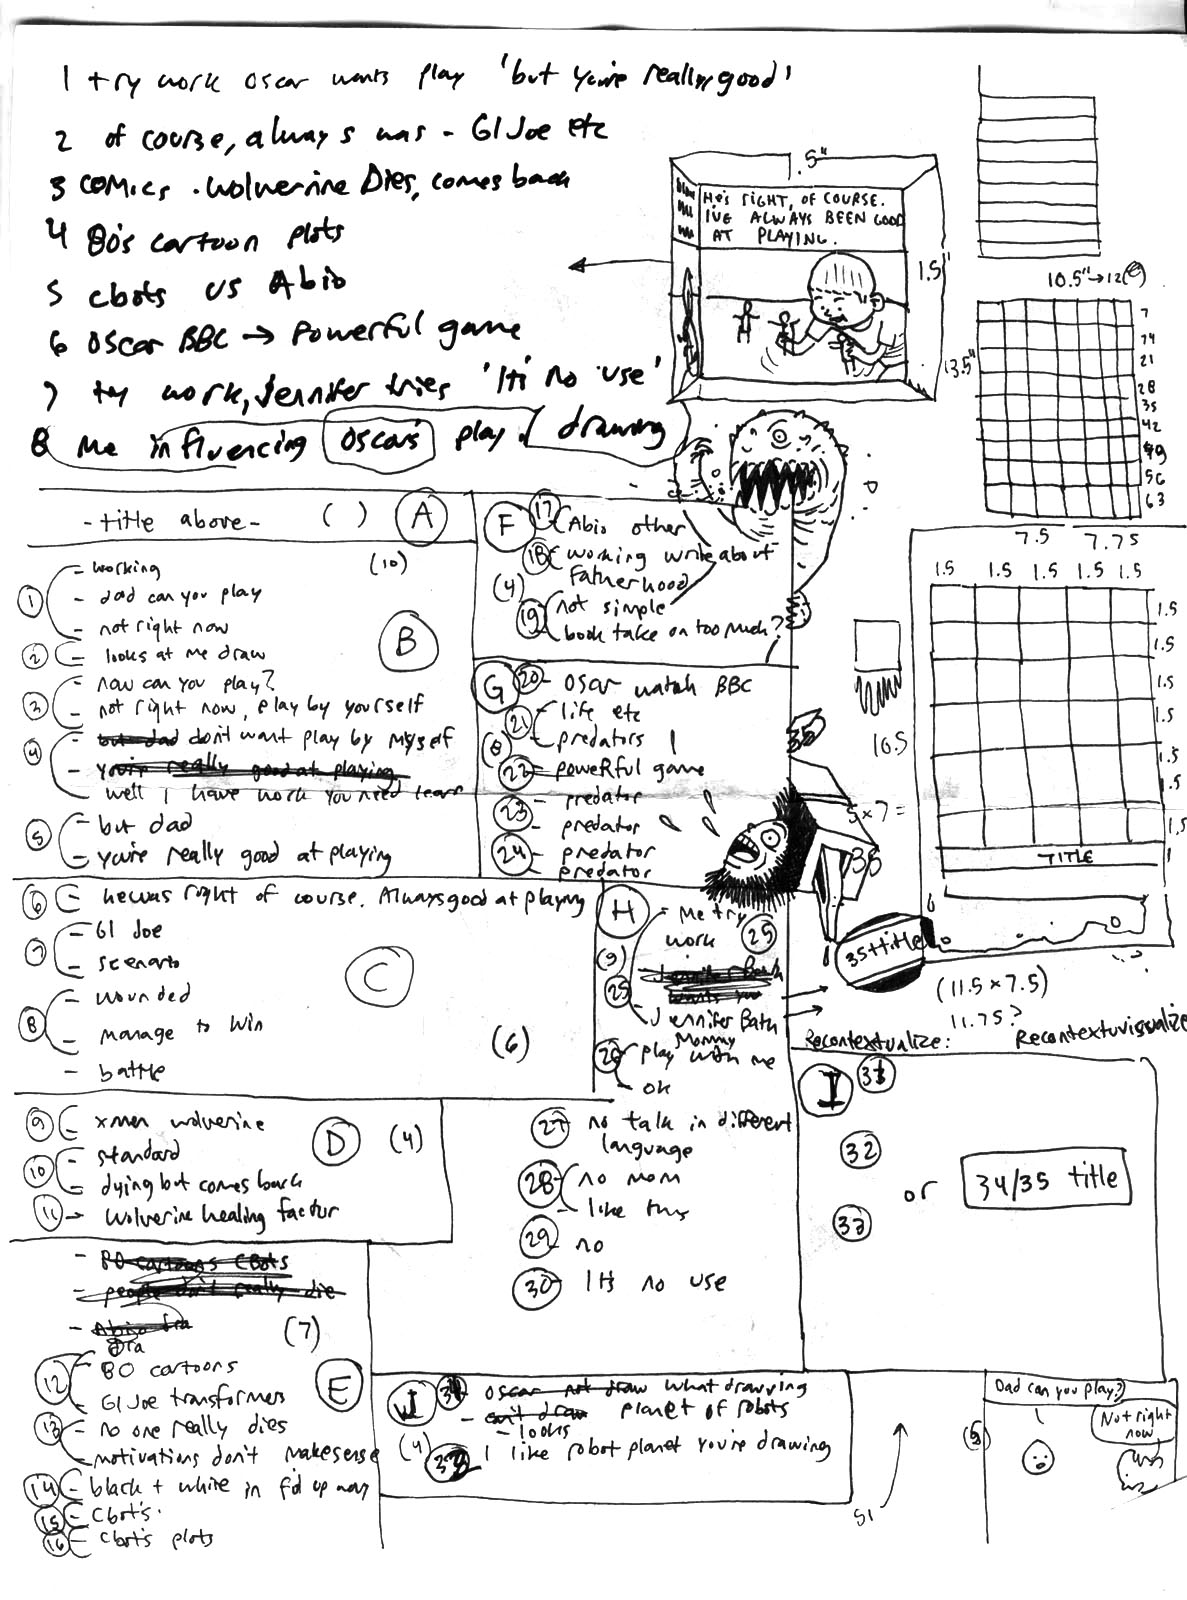 1 try work Oscar wants play 'but you're really good'
2 of course, always was - GI Joe etc
3 comics . Wolverine Dies, comes back
4 80's cartoon plots
5 cbots vs Abio
6 Oscar BBC → Powerful game
7 try work, Jennifer tries 'It's no use'
8 Me influencing Oscar's play / drawing
.5"
He's right, of course.
I've always been good
at playing.
1.5"
10.5" → 12
13.5"
7
14
21
28
35
42
49
56
63
- title above - ( ) A
- working (10)
1 - dad can you play
- not right now
B
2 - looks at me draw
- now can you play?
3 - not right now, play by yourself
4 - but dad don't want play by myself
- you're really good at playing
well I have work you need learn
5 - but dad
- you're really good at playing
6 - he was right of course. Always good at playing
7 - GI Joe
- scenario
C
8 - wounded
- manage to win
- battle
(6)
9 - xmen wolverine
D (4)
10 - standard
- dying but comes back
11 → Wolverine healing factor
- 80 cartoons CBots
- people don't really die
(7)
12 - 80 cartoons
E
GI Joe transformers
13 - no one really dies
- motivations don't make sense
14 - black + white in f'd up way
15 - Cbot's
16 - Cbot's plots
F 17 Abio other
18 working write about
fatherhood
(4)
19 not simple
book take on too much?
G 20 - Oscar watch BBC
21 - life etc
- predators
(8)
22 - powerful game
23 - predator
- predator
24 - predator
- predator
H - Me try
work 25
(9)
25
- Jennifer Bath
Mommy
26 play with me
- ok
27 no talk in different
language
28 - no mom
- like this
29 - no
30 - It's no use
J
what drawing
- can't draw planet of robots
- looks
(4)
I like robot planet you're drawing
35
5x7=
35
35+title
7.5 7.75
1.5 1.5 1.5 1.5 1.5
1.5
1.5
1.5
1.5
1.5
1.5
1.5
10.5
TITLE
1
(11.5 x 7.5)
11.75?
Recontextualize:
Recontextuvisualize
I
32
33
or 34/35 title
51
Dad can you play?
Not right
now